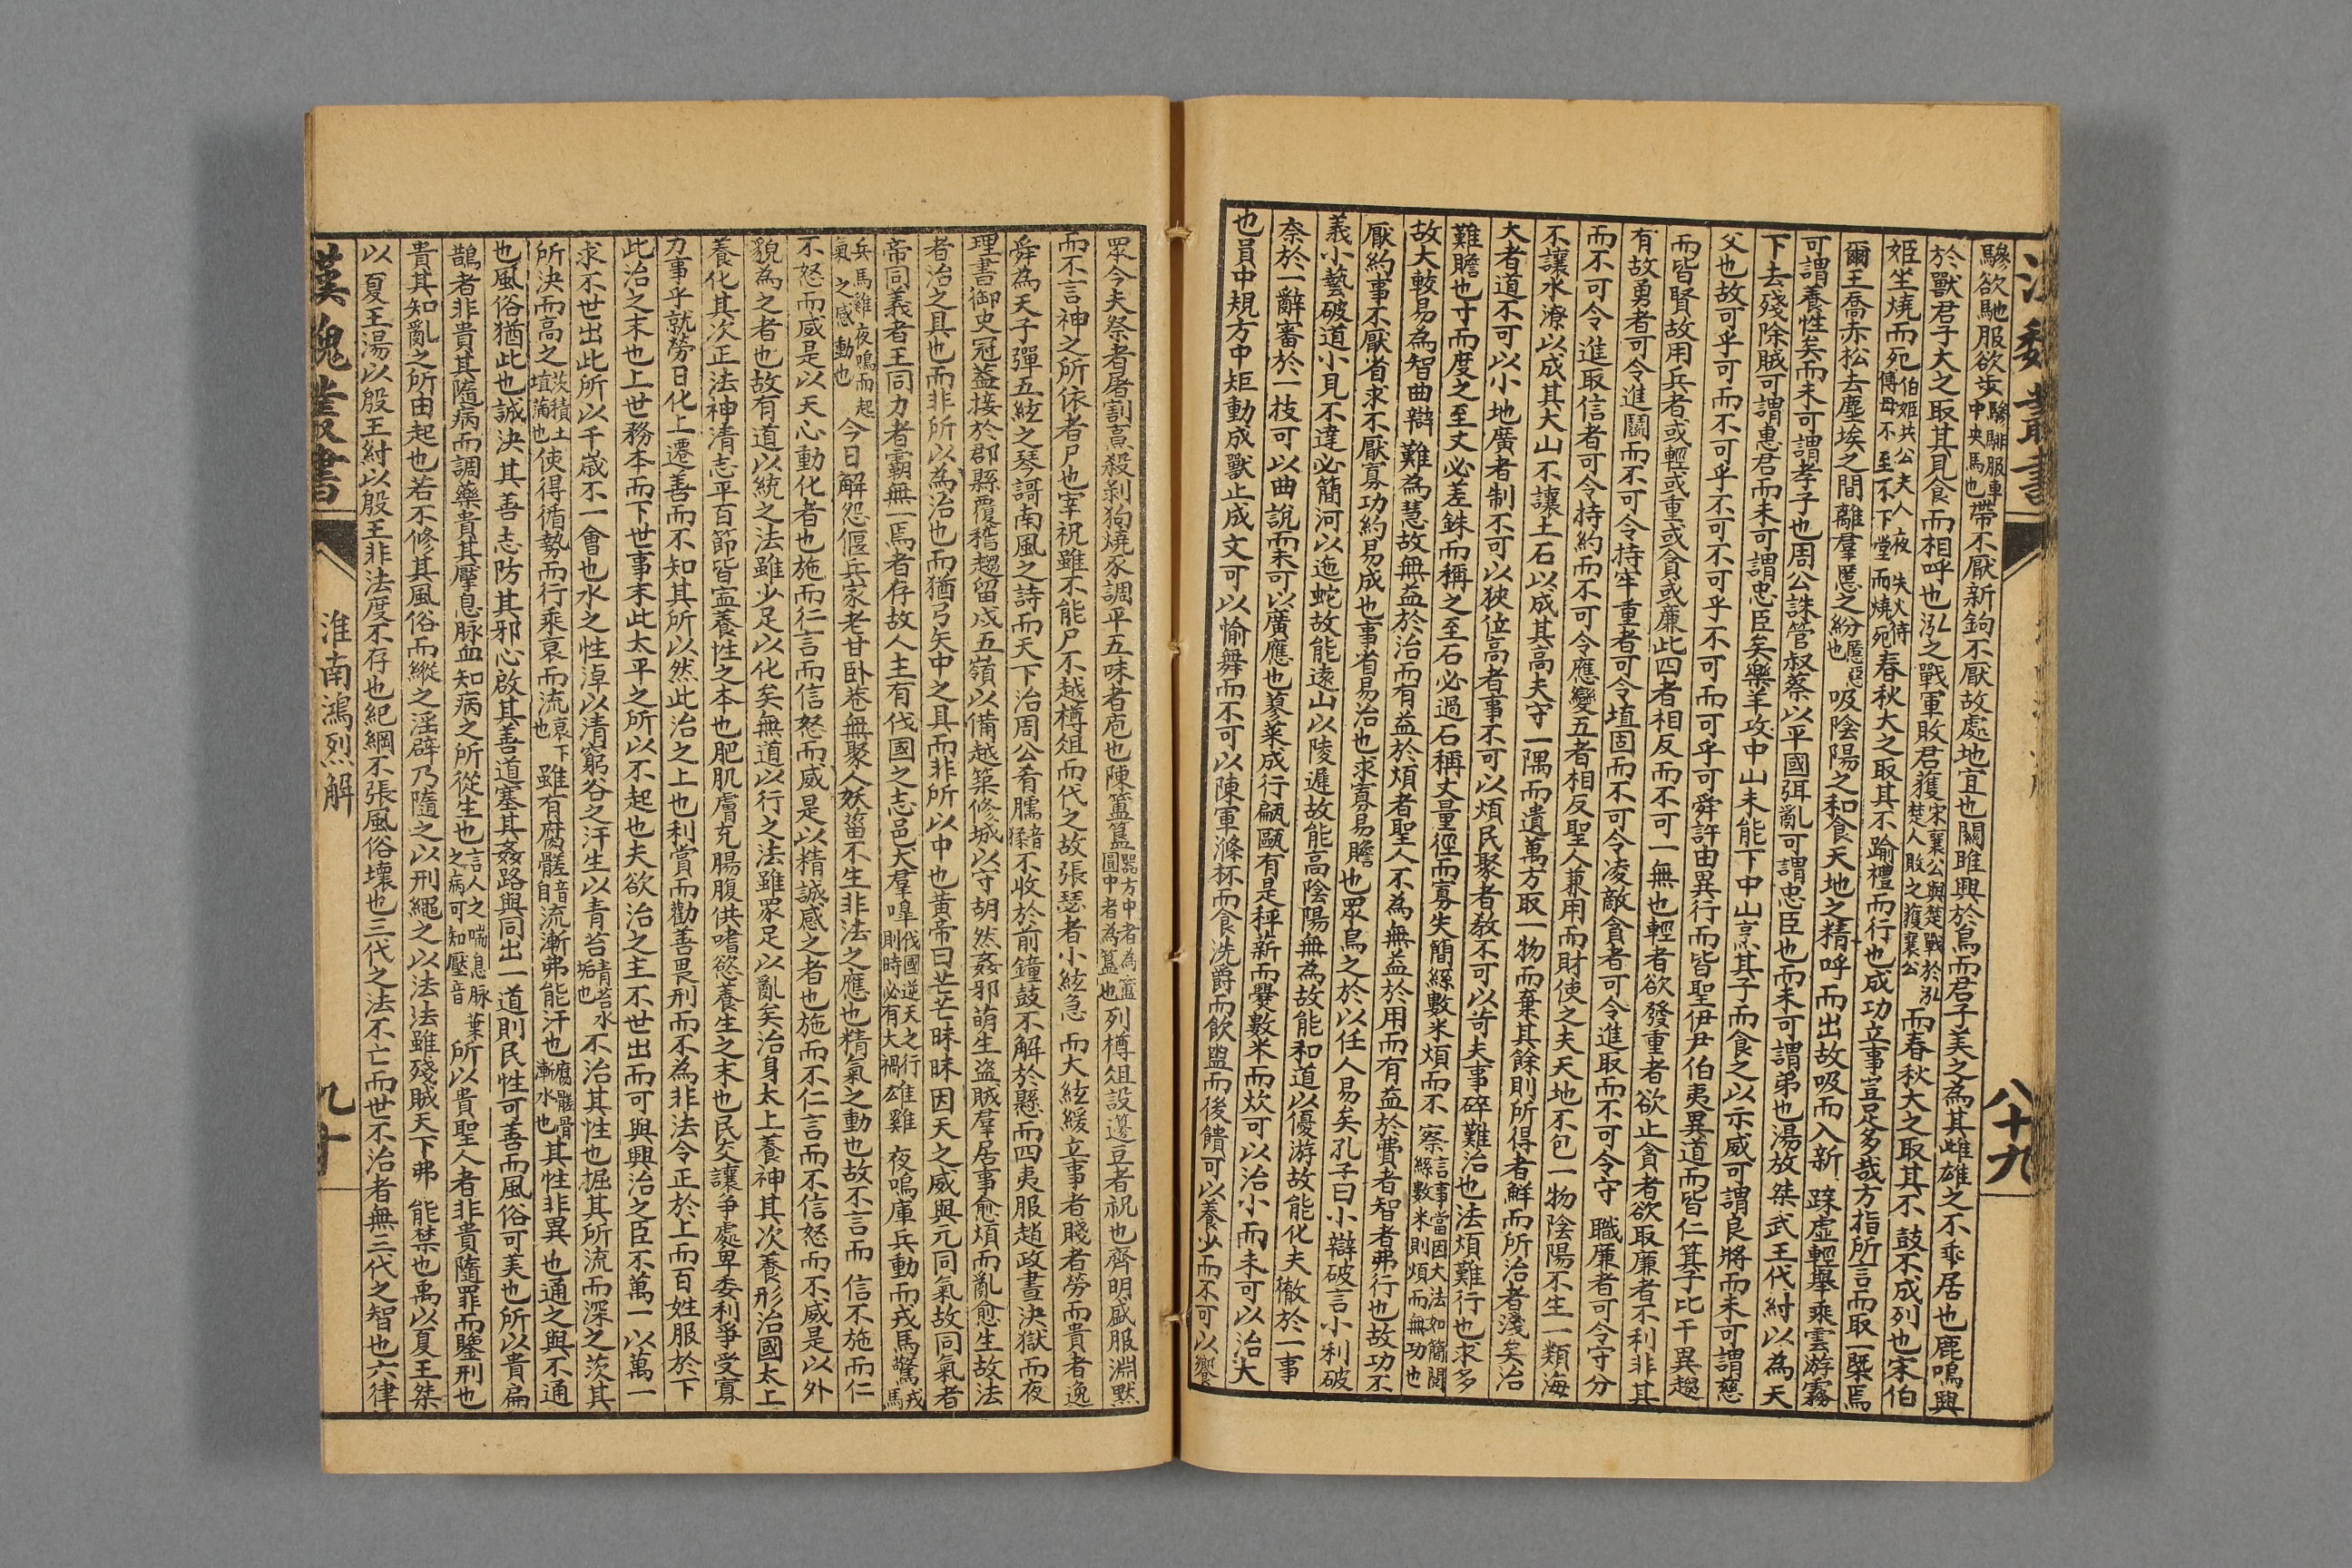 漢魏叢書
八十九
驂欲馳服欲步驂騑服車中央馬也帶不厭新鉤不厭故處地宜也關雎興於鳥而君子美之為其雌雄之不乖居也鹿鳴興
於獸君子大之取其見食而相呼也泓之戰軍敗君獲宋襄公與楚戰於泓楚人敗之獲襄公而春秋大之取其不鼓不成列也宋伯
姬坐燒而死伯姬共公夫人夜失火待傅母不至不下堂而燒死春秋大之取其不踰禮而行也成功立事豈足多哉方指所言而取一槩焉
爾王喬赤松去塵埃之間離羣慝之紛慝惡也吸陰陽之和食天地之精呼而出故吸而入新蹀虛輕舉乘雲游霧
可謂養性矣而未可謂孝子也周公誅管叔蔡以平國弭亂可謂忠臣也而未可謂弟也湯放桀武王代紂以為天
下去殘除賊可謂惠君而未可謂忠臣矣樂羊攻中山未能下中山烹其子而食之以示威可謂良將而未可謂慈
父也故可乎可而不可乎不可不可乎不可而可乎可舜許由異行而皆聖伊尹伯夷異道而皆仁箕子比干異趨
而皆賢故用兵者或輕或重或貪或廉此四者相反而不可一無也輕者欲發重者欲止貪者欲取廉者不利非其
有故勇者可令進鬭而不可令持牢重者可令埴固而不可令凌敵貪者可令進取而不可令守職廉者可令守分
而不可令進取信者可令持約而不可令應變五者相反聖人兼用而財使之夫天地不包一物陰陽不生一類海
不讓水潦以成其大山不讓土石以成其高夫守一隅而遺萬方取一物而棄其餘則所得者鮮而所治者淺矣治
大者道不可以小地廣者制不可以狹位高者事不可以煩民聚者教不可以苛夫事碎難治也法煩難行也求多
難贍也寸而度之至丈必差銖而稱之至石必過石稱丈量徑而寡失簡絲數米煩而不察言事當因大法如簡閱絲數米則煩而無功也
故大較易為智曲辯難為慧故無益於治而有益於煩者聖人不為無益於用而有益於費者智者弗行也故功不
厭約事不厭省求不厭寡功約易成也事省易治也求寡易贍也眾鳥之於以任人易矣孔子曰小辯破言小利破
義小藝破道小見不達必簡河以迤蛇故能遠山以陵遲故能高陰陽無為故能和道以優游故能化夫徹於一事
奈於一辭審於一技可以曲說而未可以廣應也蓼菜成行甂甌有是秤薪而爨數米而炊可以治小而未可以治大
也員中規方中矩動成獸止成文可以愉舞而不可以陳軍滌杯而食洗爵而飲盥而後饋可以養少而不可以饗
眾今夫祭者屠割烹殺剝狗燒豕調平五味者庖也陳簠簋器方中者為簠圓中者為簋也列樽俎設邊豆者祝也齊明盛服淵默
而不言神之所依者尸也宰祝雖不能尸不越樽俎而代之故張瑟者小絃急而大絃緩立事者賤者勞而貴者逸
舜為天子彈五絃之琴謌南風之詩而天下治周公肴臑不收於前鐘鼓不解於懸而四夷服趙政晝決獄而夜
理書御史冠蓋接於郡縣覆稽趨留戍五嶺以備越築修城以守胡然姦邪萌生盜賊羣居事愈煩而亂愈生故法
者治之具也而非所以為治也而猶弓矢中之具而非所以中也黃帝曰芒芒昧昧因天之威與元同氣故同氣者
帝同義者王同力者霸無一焉者存故人主有伐國之志邑犬羣嘷伐國逆天之行則時必有大禍雄雞夜鳴庫兵動而戎馬驚戎馬
兵馬雞夜鳴而起氣之感動也今日解怨偃兵家老甘卧巷無聚人妖菑不生非法之應也精氣之動也故不言而信不施而仁
不怒而威是以天心動化者也施而仁言而信怒而威是以精誠感之者也施而不仁言而不信怒而不威是以外
貌為之者也故有道以統之法雖少足以化矣無道以行之法雖眾足以亂矣治身太上養神其次養形治國太上
養化其次正法神清志平百節皆寍養性之本也肥肌膚充腸腹供嗜慾養生之末也民交讓爭處卑委利爭受寡
力事乎就勞日化上遷善而不知其所以然此治之上也利賞而勸善畏刑而不為非法令正於上而百姓服於下
此治之末也上世務本而下世事末此太平之所以不起也夫欲治之主不世出而可與興治之臣不萬一以萬一
求不世出此所以千歲不一會也水之性淖以清窮谷之汙生以青苔青苔水垢也不治其性也掘其所流而深之茨其
所決而高之茨積土填滿也使得循勢而行乘衰而流衰下也雖有腐髊音自流漸弗能汙也腐髊骨漸水也其性非異也通之與不通
也風俗猶此也誠決其善志防其邪心啟其善道塞其姦路與同出一道則民性可善而風俗可美也所以貴扁
鵲者非貴其隨病而調藥貴其擪息脉血知病之所從生也言人之喘息脉之病可知擪音葉所以貴聖人者非貴隨罪而鑒刑也
貴其知亂之所由起也若不修其風俗而縱之淫辟乃隨之以刑繩之以法法雖殘賊天下弗能禁也禹以夏王桀
以夏王湯以殷王紂以殷王非法度不存也紀綱不張風俗壞也三代之法不亡而世不治者無三代之智也六律
漢魏叢書
淮南鴻烈解
九十